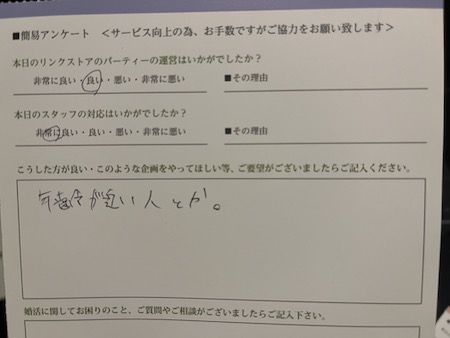 ■簡易アンケート ＜サービス向上の為、お手数ですがご協力をお願い致します＞
本日のリンクストアのパーティーの運営はいかがでしたか？
非常に良い・良い・悪い・非常に悪い ■その理由
本日のスタッフの対応はいかがでしたか？
非常に良い・良い・悪い・非常に悪い ■その理由
こうした方が良い・このような企画をやってほしい等、ご要望がございましたらご記入ください。
年齢が近い人とか。
婚活に関してお困りのこと、ご質問やご相談がございましたらご記入下さい。